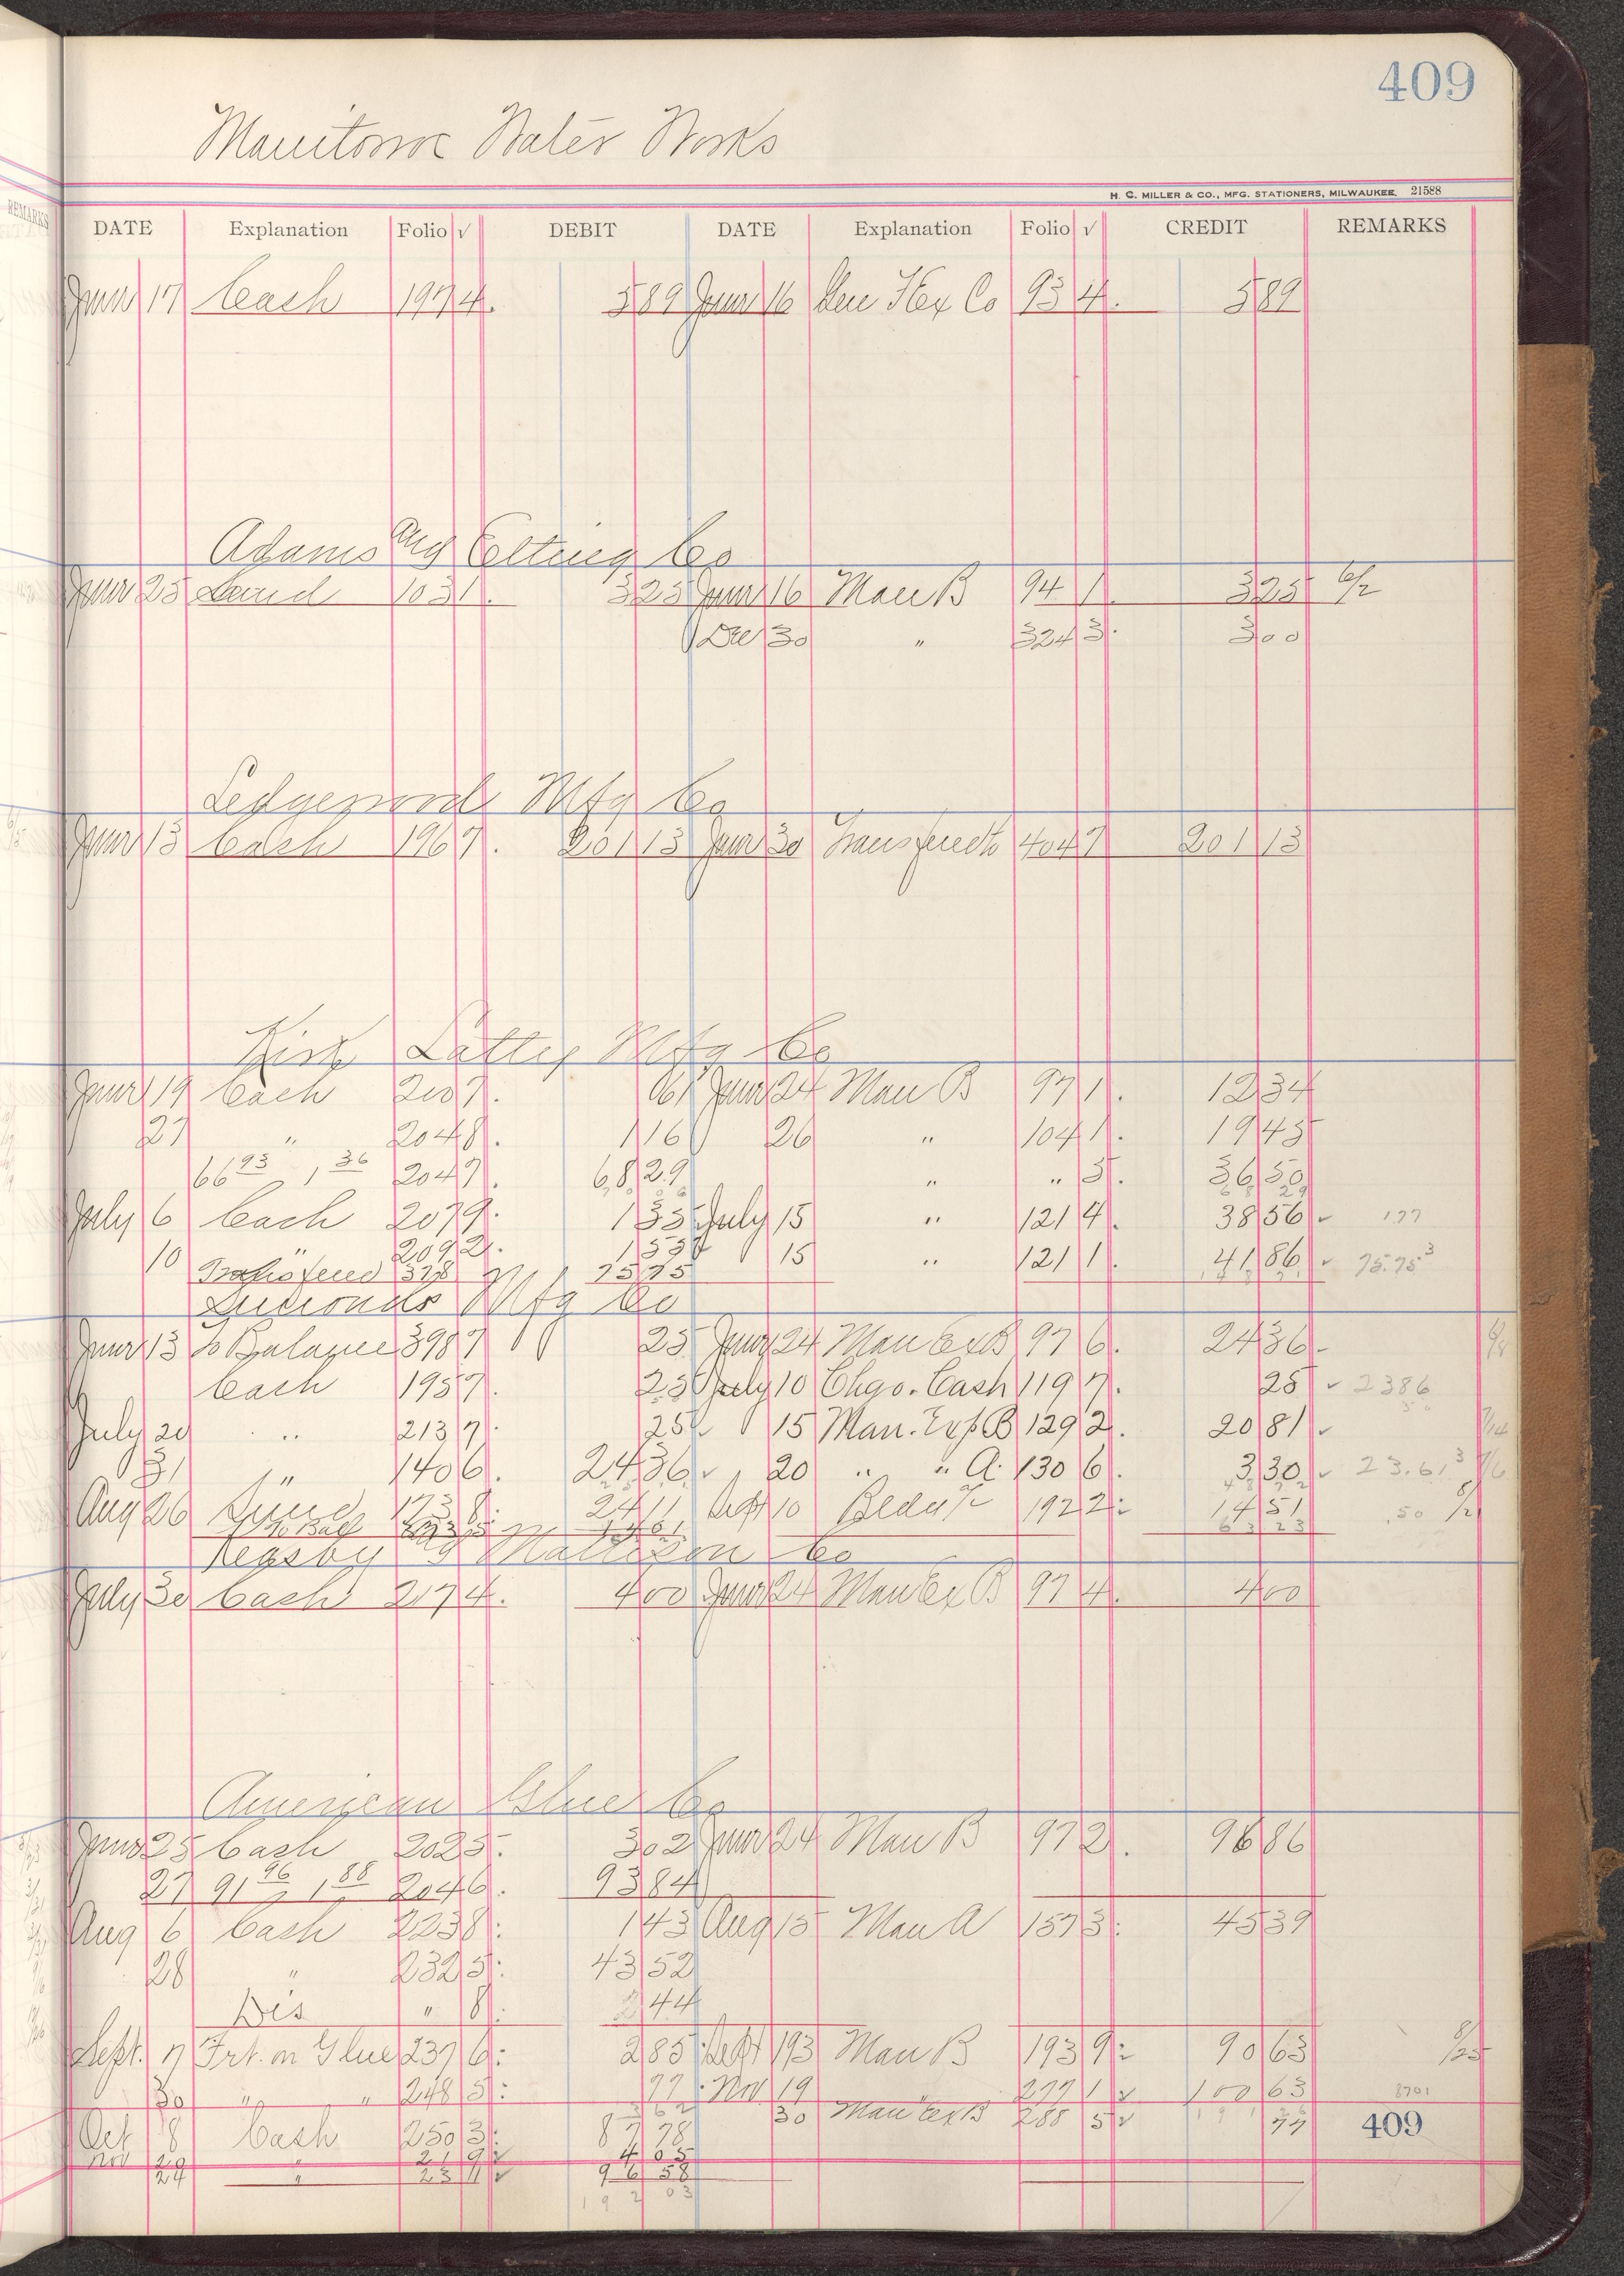 409
Manitowoc Water Works
H. C. MILLER & CO., MFG. STATIONERS, MILWAUKEE. 21588
REMARKS
DATE Explanation Folio √ DEBIT DATE Explanation Folio √ CREDIT REMARKS
June 17 Cash 197 4. 5 89 June 16 Co 93 4. 5 89
Adams & Elting Co
June 25 103 1. 3 25 June 16 Man B 94 1 3 25
Dec 30 " 324 3. 3 00
Mfg Co
June 13 Cash 196 7. 201 13 June 30 404 7 201 13
Kirk Latty Mfg Co
June 19 Cash 200 7. 61 June 24 Man B 97 1. 12 34
27 " 204 8. 1 16 26 " 104 1. 19 45
66 93 1 36 204 7. 68 29 " " 5. 36 50
July 6 Cash 207 9. 1 35 July 15 " 121 4. 38 56 √ 177
10 " 209 2. 1 55 15 " 121 1. 41 86 √ 75.75 3
378 75 75
Mfg Co
June 13 To Balance 398 7 25 June 24 Man Ex B 97 6. 24 36
Cash 195 7. 25 July 10 Chgo. Cash 119 7. 25 √ 2386
July 20 " 213 7. 25 √ 15 Man. Exp B 129 2. 20 81 √
31 " 140 6. 24 36 √ 20 " " A. 130 6. 3 30 √ 23.61 3
Aug 26 173 8. 24 11 Sept 10 192 2: 14 51 .50
& Mattison Co
July 30 Cash 217 4. 4 00 June 24 Man Ex B 97 4. 4 00
American Glue Co
June 25 Cash 202 5. 3 02 June 24 Man B 97 2. 96 86
27 91 96 1 88 204 6. 93 84
Aug 6 Cash 223 8: 1 43 Aug 15 Man A 157 3: 45 39
28 " 232 5: 43 52
Dis " 8: 44
Sept. 7 Frt. on Glue 237 6: 2 85 Sept 193 Man B 193 9: 90 63
30 " " 248 5: 77 Nov 19 " 277 1 √ 100 63 8701
30 Man Ex B 288 5 √ 77
Oct 8 Cash 250 3: 87 78
Nov 29 4 05
24 " 96 58
192 03
409